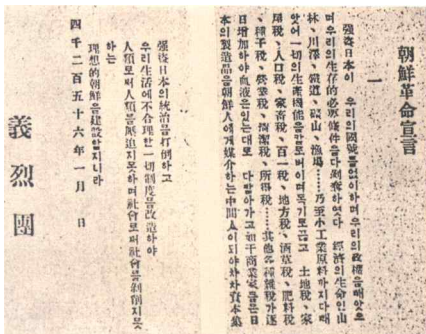 朝鮮革命宣言
一
强盜日本이 우리의國號를업이하며우리의政權을빼앗으
며우리의生存的必要條件을다剝奪하엿다 經濟의生命인山
林、川澤、鐵道、礦山、漁場……乃至小工業原料까지다빼
앗어一切의生產機能을칼로버이며독기로끈고 土地稅、家
屋稅、人口稅、家畜稅、百一稅、地方稅、酒草稅、肥料稅
、種子稅、營業稅、淸潔稅、所得稅……其他各種雜稅가逐
日增加하야血液은잇는대로 다빨아가고如干商業家들은日
本의製造品을朝鮮人에게媒介하는中間人이되야차차資本集
强盜日本의統治를打倒하고
우리生活에不合理한一切制度를改造하야
人類로써人類를壓迫지못하며社會로써社會를剝削지못
하는
理想的朝鮮을建設할지니라
四千二百五十六年一月 日
義烈團